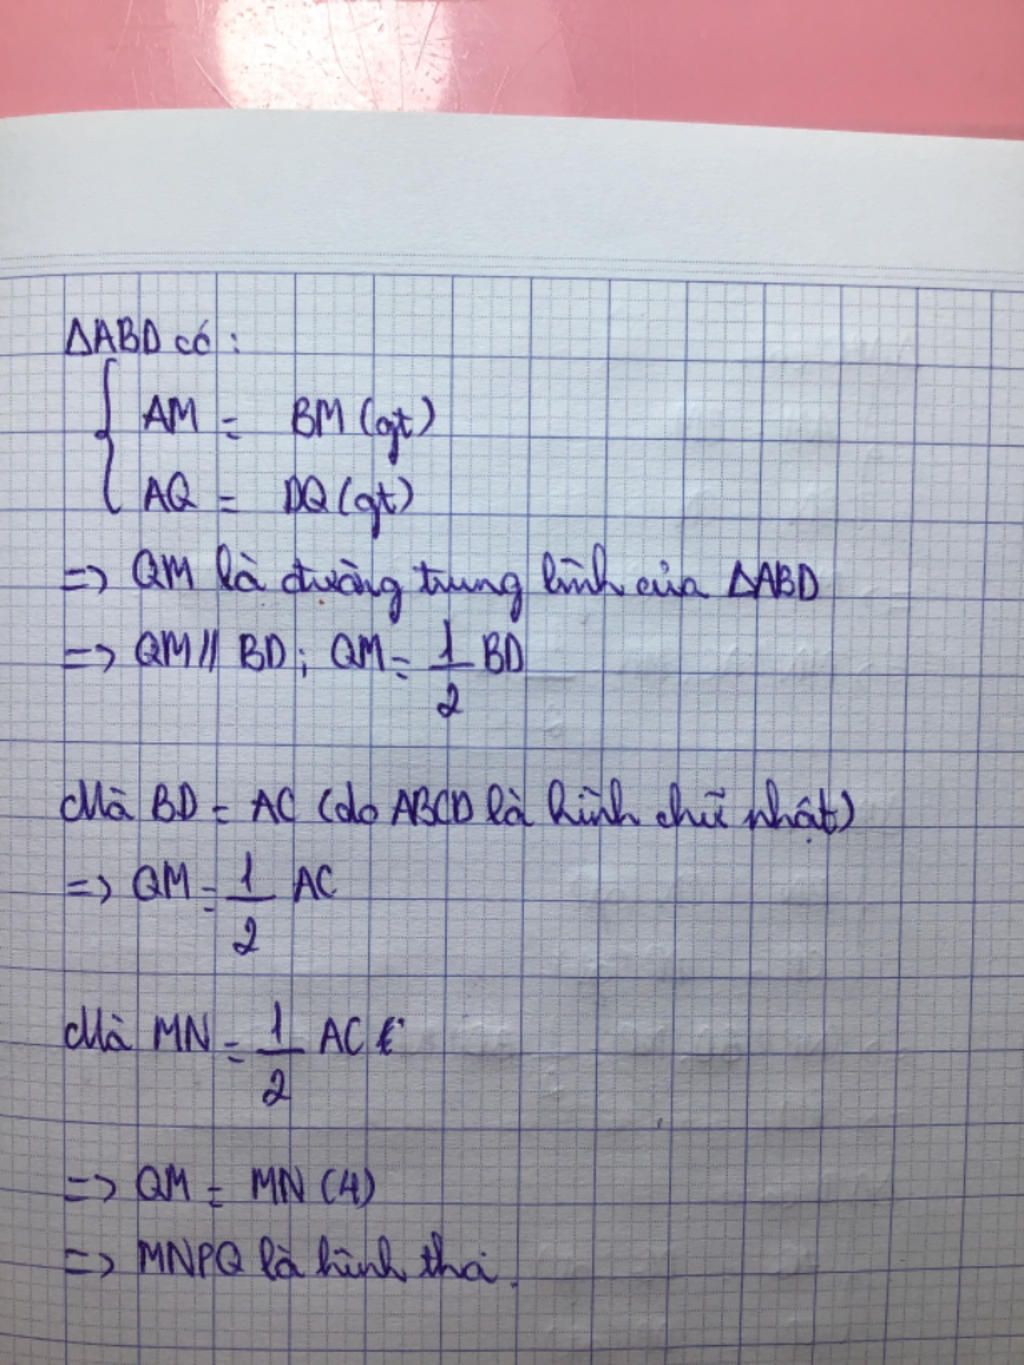 ΔABD có :
{ AM = BM (gt)
AQ = DQ (gt)
=> QM là đường trung bình của ΔABD
=> QM // BD ; QM = 1/2 BD
Mà BD = AC (do ABCD là hình chữ nhật)
=> QM = 1/2 AC
Mà MN = 1/2 AC
=> QM = MN (4)
=> MNPQ là hình thoi.